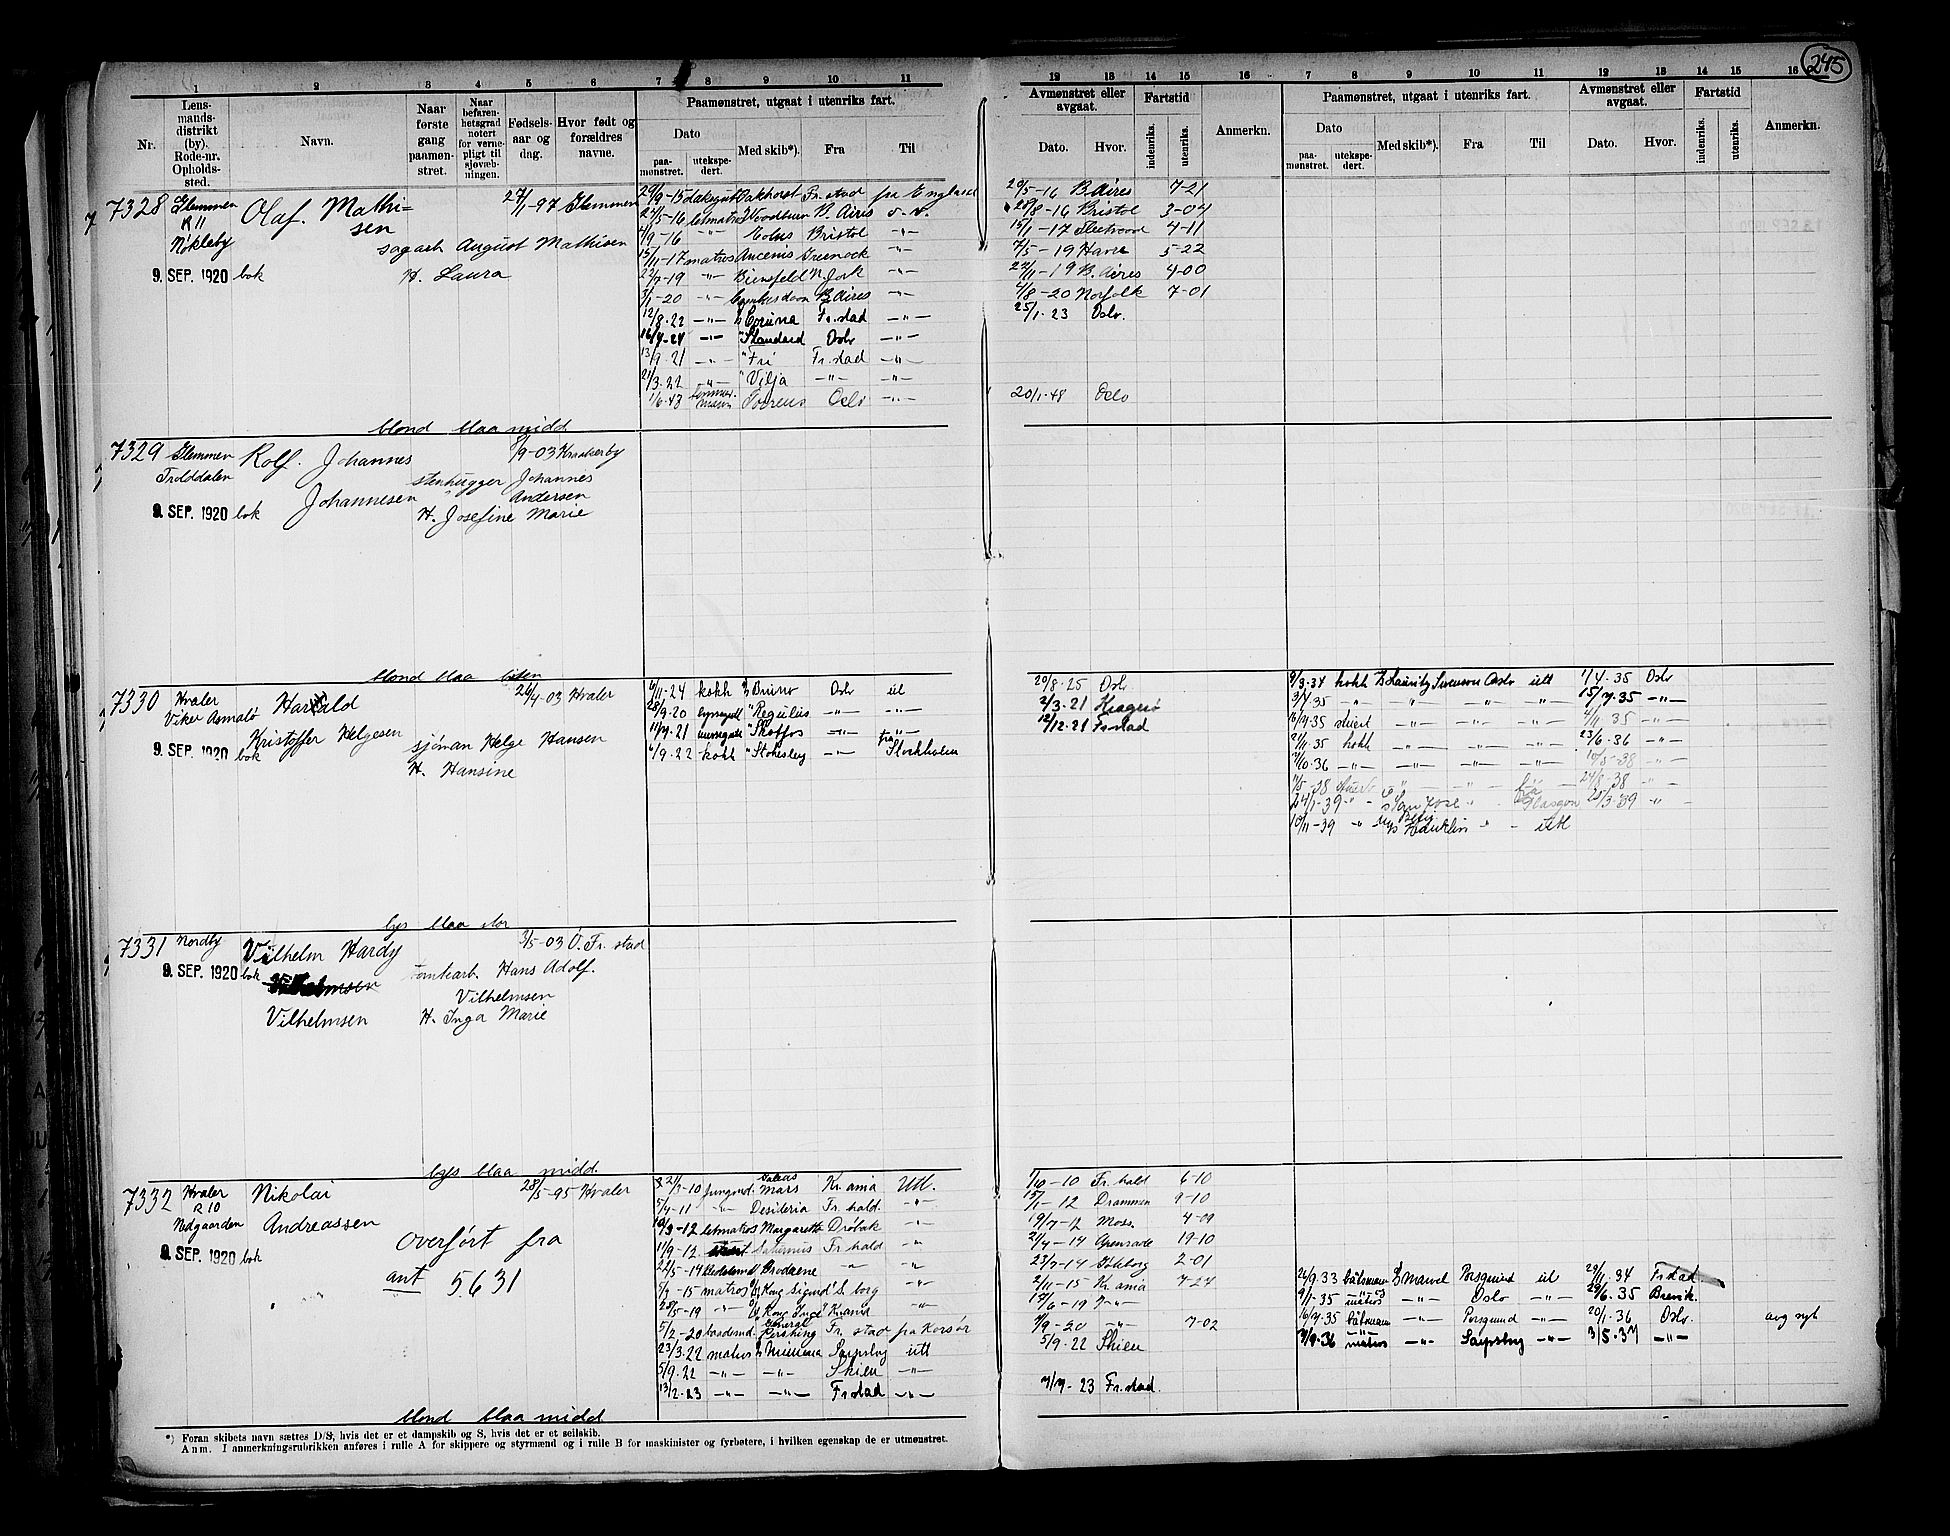 245
1 2 3 4 5 6 7 8 9 10 11 12 13 14 15 16 7 8 9 10 11 12 13 14 15 16
Nr.
Lens-
mands-
distrikt
(by).
Rode-nr.
Opholds-
sted.
Navn.
Naar
første
gang
paamøn-
stret.
Naar
befaren-
hetsgrad
notert
for verne-
pligt til
sjøvæb-
ningen.
Fødsels-
aar og
dag.
Hvor født og
forældres
navne.
Paamønstret, utgaat i utenriks fart.
Dato
paa-
mønstret.
utekspe-
dert.
Med skib*).
Fra
Til
Avmønstret eller
avgaat.
Dato.
Hvor.
Fartstid
indenriks.
utenriks.
Anmerkn.
Paamønstret, utgaat i utenriks fart.
Dato
paa-
mønstret.
utekspe-
dert.
Med skib*).
Fra
Til
Avmønstret eller
avgaat.
Dato.
Hvor.
Fartstid
indenriks.
utenriks.
Anmerkn.
7328 Glemmen
R 11
Nøkleby
9. SEP. 1920 bok
Olaf. Mathi-
sen
27/1-97 Glemmen
sagarb August Mathisen
H. Laura
29/9-15 Fr. stad fra England
24/5-16 letmatr Woodburn B. Aires
4/9-16 -"- Bristol -"-
15/11-17 matros Greenock -"-
22/7-19 -"- N. York -"-
5/1-20 -"- B. Aires -"-
12/8.22 -"- Coruna Fr. stad -"-
16/4-24 -"- "Standard Oslo -"-
13/9.21 -"- "Fri Fr. stad -"-
21/3.22 -"- "Vilja -"- -"-
1/6.43 Oslo -"-
20/5-16 B. Aires 7-21
28/8-16 Bristol 3-04
15/1-17 Fleetwood 4-11
7/5-19 Havre 5-22
22/11-19 B. Aires 4-00
4/8-20 Norfolk 7-01
25/1.23 Oslo.
20/1.48 Oslo
blond blaa midd
7329 Glemmen
Trolddalen
9. SEP. 1920 bok
Rolf. Johannes
Johannesen
8/9-03 Kraakerby
stenhugger Johannes
Andersen
H. Josefine Marie
blond blaa liten
7330 Hvaler
Viker Asmalø
9. SEP. 1920 bok
Harald
Kristoffer Helgesen
26/4-03 Hvaler
sjöman Helge Hansen
H. Hansine
6/11-24 kokk Bruno Oslo ut
28/9.20 "Regulus -"- -"-
11/4.21 "Skotfos -"- fra
6/9.22 kokk "Stokesley -"- Stockholm
20/8-25 Oslo
2/3.21 Kragerø
12/12.21 Frstad
9/3-34 kokk Lauritz Swenson Oslo utl 1/4-35 Oslo
3/4.35 -"- -"- -"- -"- 15/7.35 -"-
16/7.35 stuert -"- -"- -"- 4/11 35 -"-
21/11.35 kokk -"- -"- -"- 23/6-36 -"-
7/10.36 -"- -"- -"- -"- 10/5-38 -"-
11/5-38 Stuert " " fra 24/8-38 -"-
24/1-39 " San Jose " Glasgow 25/3-39 "
10/11-39 " Benj. Franklin " - utl
lyst blaa stor
7331 Nordby
9. SEP. 1920 bok
Vilhelm Hardy
Vilhelmsen
Vilhelmsen
1/5-03 Ö. Fr. stad
tomtearb. Hans Adolf.
Vilhelmsen
H. Inga Marie
lyst blaa midd.
7332 Hvaler
R 10
Nedgaarden
9. SEP. 1920 bok
Nikolai
Andreassen
28/5-95 Hvaler
overført fra
ant 5631
21/3-10 jungmd. Mars Kr. ania Utl.
5/4-11 -"- Desideria Fr. hald. -"-
18/3-12 letmatros Margarette Drøbak -"-
11/9-12 Saturnus Fr. hald -"-
22/5-14 Brodrene -"- -"-
5/9-15 matros Kong Sigurd S. borg -"-
28/5-19 -"- Kong Inge Kr. and -"-
5/2-20 baadsmd. General Pershing Fr. stad fra Korsør
23/3.22 matros Sarpsbg utl
5/9.22 -"- -"- Skien -"-
13/2.23 -"- -"- Fr. stad -"-
1/10-10 Fr. hald 6-10
15/1-12 Drammen 9-10
19/7-12 Moss. 4-09
21/4-14 Apenrade 19-10
23/7-14 2-01
2/11-15 Kr. ania 7-24
17/6-19 -"-
7/9-20 -"- 7-02
5/9.22 Skien
7/7-23 Fr. stad.
26/9.33 båtsmann Marvel Porsgrund ut 29/11.34 Fr. stad.
9/1-35 matros -"- Oslo -"- 29/6.35 Brevik.
16/7-35 båtsmann -"- Porsgrund -"- 20/1.36 Oslo. avg sykt
3/9.36 matros -"- Sarpsbrg -"- 3/5.37 -"-
blond blaa midd
*) Foran skibets navn sættes D/S, hvis det er et dampskib og S, hvis det er et seilskib.
Anm. I anmerkningsrubrikken anføres i rulle A for skippere og styrmænd og i rulle B for maskinister og fyrbøtere, i hvilken egenskap de er utmønstret.